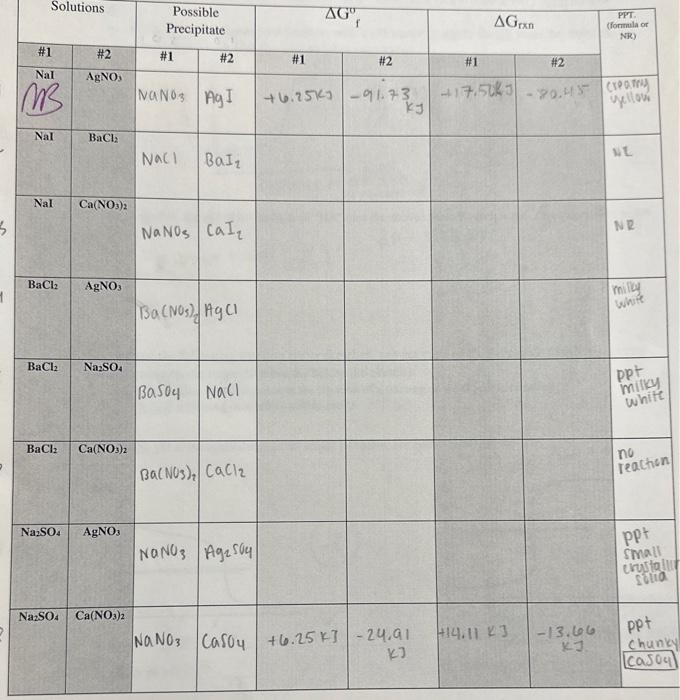 Solutions
Possible
Precipitate
ΔG⁰f
ΔGrxn
PPT.
(formula or
NR)
#1 #2 #1 #2 #1 #2 #1 #2
NaI AgNO₃ NaNO₃ AgI +6.25KJ -91.73 KJ +17.50KJ -80.45 creamy yellow
MB
NaI BaCl₂ NaCl BaI₂
NaI Ca(NO₃)₂ NaNO₃ CaI₂ NR
BaCl₂ AgNO₃ Ba(NO₃)₂ AgCl milky white
BaCl₂ Na₂SO₄ BaSO₄ NaCl ppt milky white
BaCl₂ Ca(NO₃)₂ Ba(NO₃)₂ CaCl₂ no reaction
Na₂SO₄ AgNO₃ NaNO₃ Ag₂SO₄ ppt small
Na₂SO₄ Ca(NO₃)₂ NaNO₃ CaSO₄ +6.25 KJ -24.91 KJ +14.11 KJ -13.66 KJ ppt chunky CaSO₄